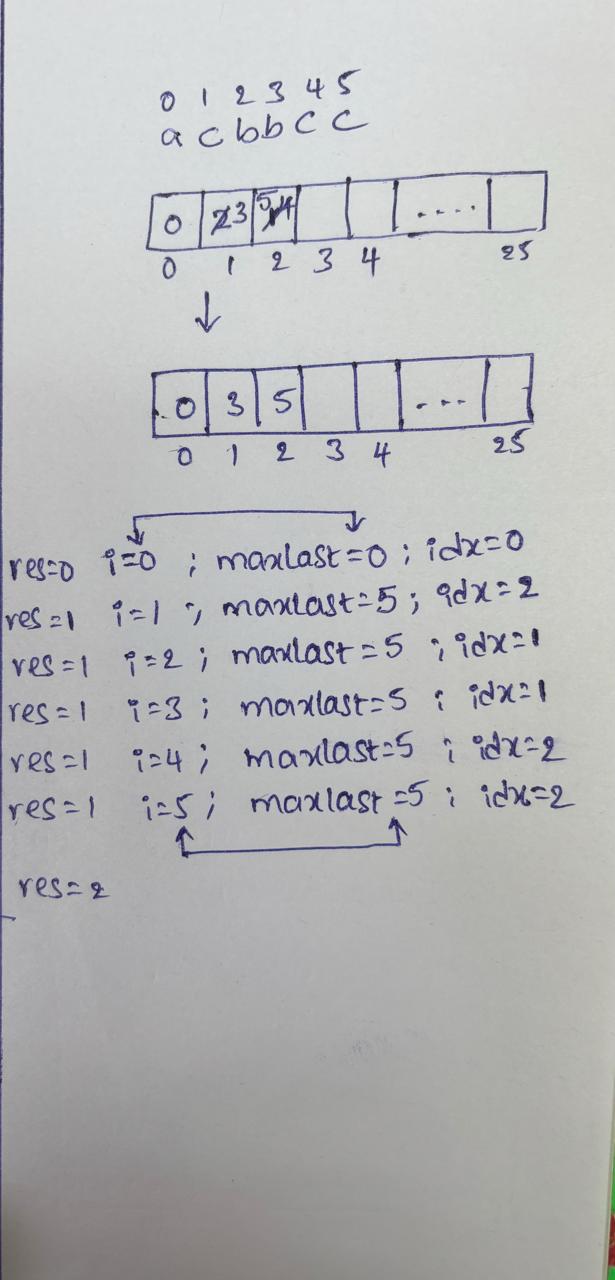 0 1 2 3 4 5
a c b b c c
0 3 5 ....
0 1 2 3 4 25
0 3 5 ...
0 1 2 3 4 25
res=0 i=0 ; maxlast=0 ; idx=0
res=1 i=1 ; maxlast=5 ; idx=2
res=1 i=2 ; maxlast=5 ; idx=1
res=1 i=3 ; maxlast=5 ; idx=1
res=1 i=4 ; maxlast=5 ; idx=2
res=1 i=5 ; maxlast=5 ; idx=2
res=2